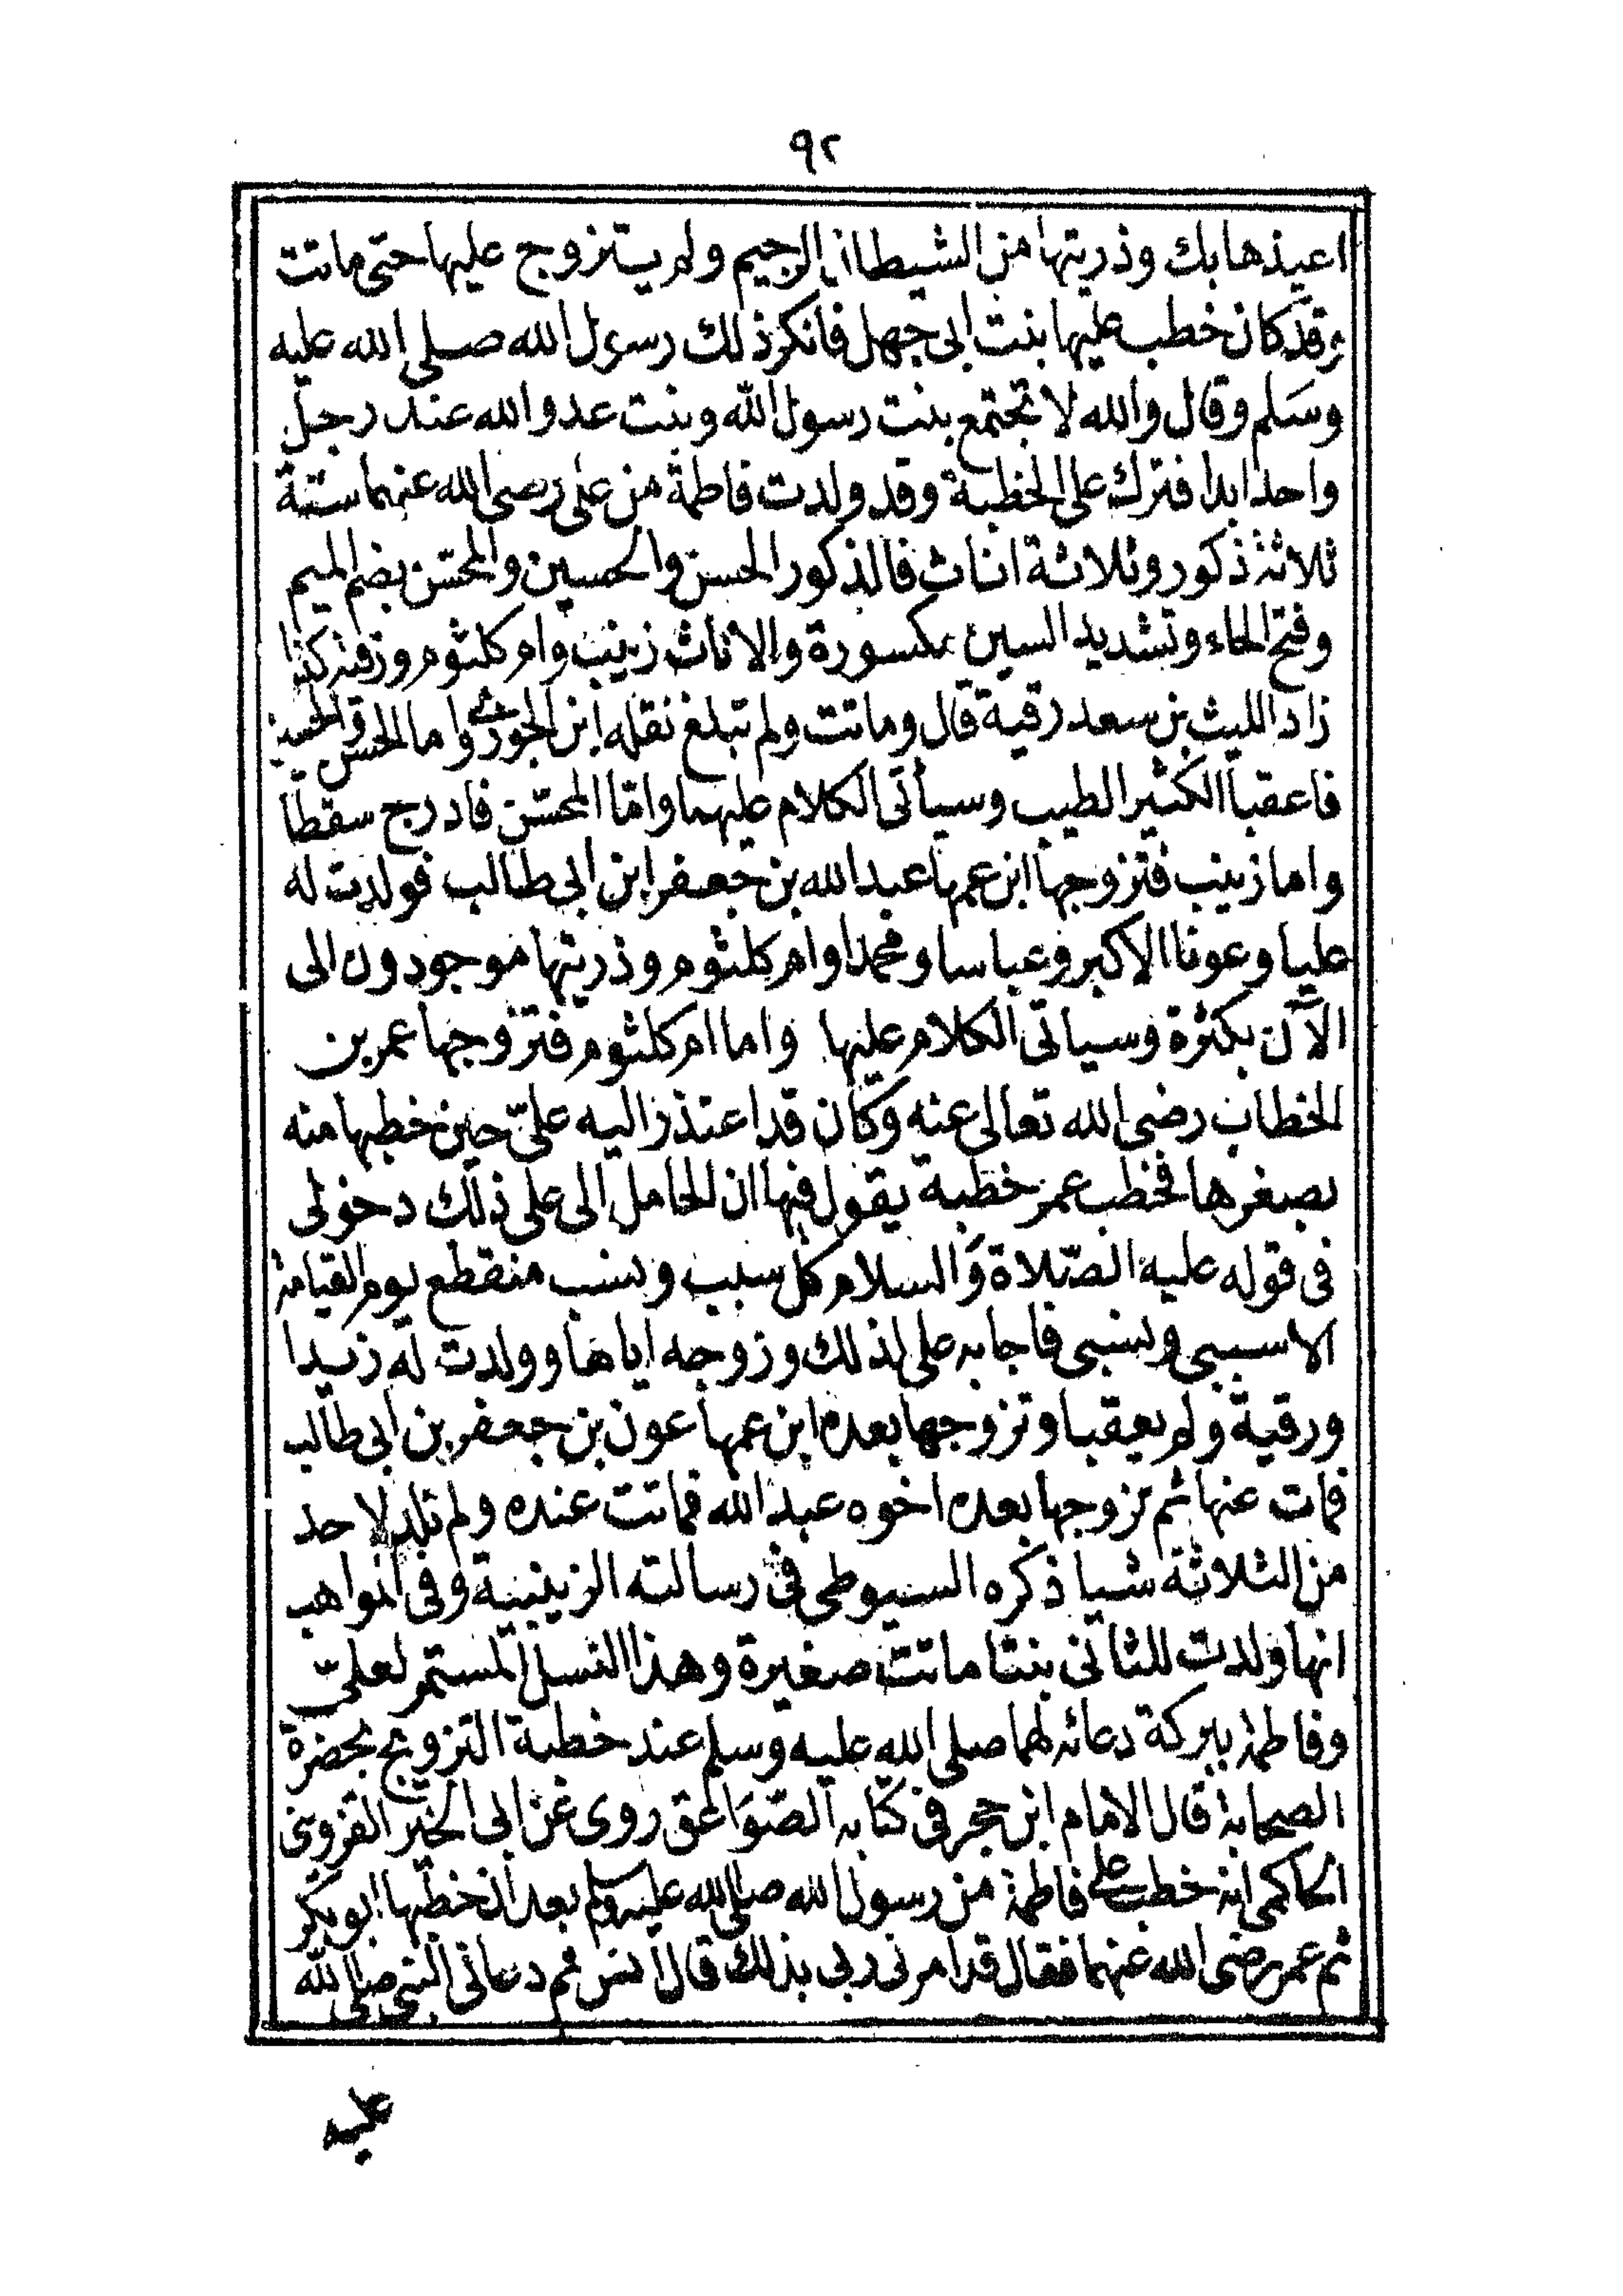 ٩٢
اعيذها بك وذريتها من الشيطان الرجيم ولم يتزوج عليها حتى ماتت
وقد كان خطب عليها بنت ابى جهل فانكر ذلك رسول الله صلى الله عليه
وسلم وقال والله لا تجتمع بنت رسول الله وبنت عدو الله عند رجل
واحد ابدا فترك على الخطبة وقد ولدت فاطمة من على رضى الله عنهما ستة
ثلاثة ذكور وثلاثة اناث فالذكور الحسن والحسين والمحسّن بضم الميم
وفتح الحاء وتشديد السين مكسورة والاناث زينب وام كلثوم ورقية كذا
زاد الليث بن سعد رقية قال وماتت ولم تبلغ نقله ابن الجوزى واما الحسن والحسين
فاعقبا الكثير الطيب وسيأتى الكلام عليهما وامّا المحسّن فادرج سقطا
واما زينب فتزوجها ابن عمها عبد الله بن جعفر ابن ابى طالب فولدت له
عليا وعونا الاكبر وعباسا ومحمدا وام كلثوم وذريتها موجودون الى
الآن بكثرة وسياتى الكلام عليها واما ام كلثوم فتزوجها عمر بن
الخطاب رضى الله تعالى عنه وكان قد اعتذر اليه علىّ حين خطبها منه
بصغرها فخطب عمر خطبة يقول فيها ان الحامل لى على ذلك دخولى
فى قوله عليه الصّلاة والسلام كل سبب ونسب منقطع يوم القيامة
الا سببى ونسبى فاجابه على لذلك وزوجه اياها وولدت له زيدا
ورقية ولم يعقبا وتزوجها بعده ابن عمها عون بن جعفر بن ابى طالب
فمات عنها ثم تزوجها بعده اخوه عبد الله فماتت عنده ولم تلد لاحد
من الثلاثة شيا ذكره السيوطى فى رسالته الزينبية وفى المواهب
انها ولدت للثانى بنتا ماتت صغيرة وهذا النسل المستمر لعلىّ
وفاطمة ببركة دعائه لهما صلى الله عليه وسلم عند خطبة التزويج بحضرة
الصحابة قال الامام ابن حجر فى كتابه الصّوَاعق روى عن ابى الخير القزوينى
الحاكمى انه خطب على فاطمة من رسول الله صلى الله عليه وسلم بعد ان خطبها ابو بكر
ثم عمر رضى الله عنهما فقال قد امرنى ربى بذلك قال انس ثم دعانى النبى صلى الله
عليه